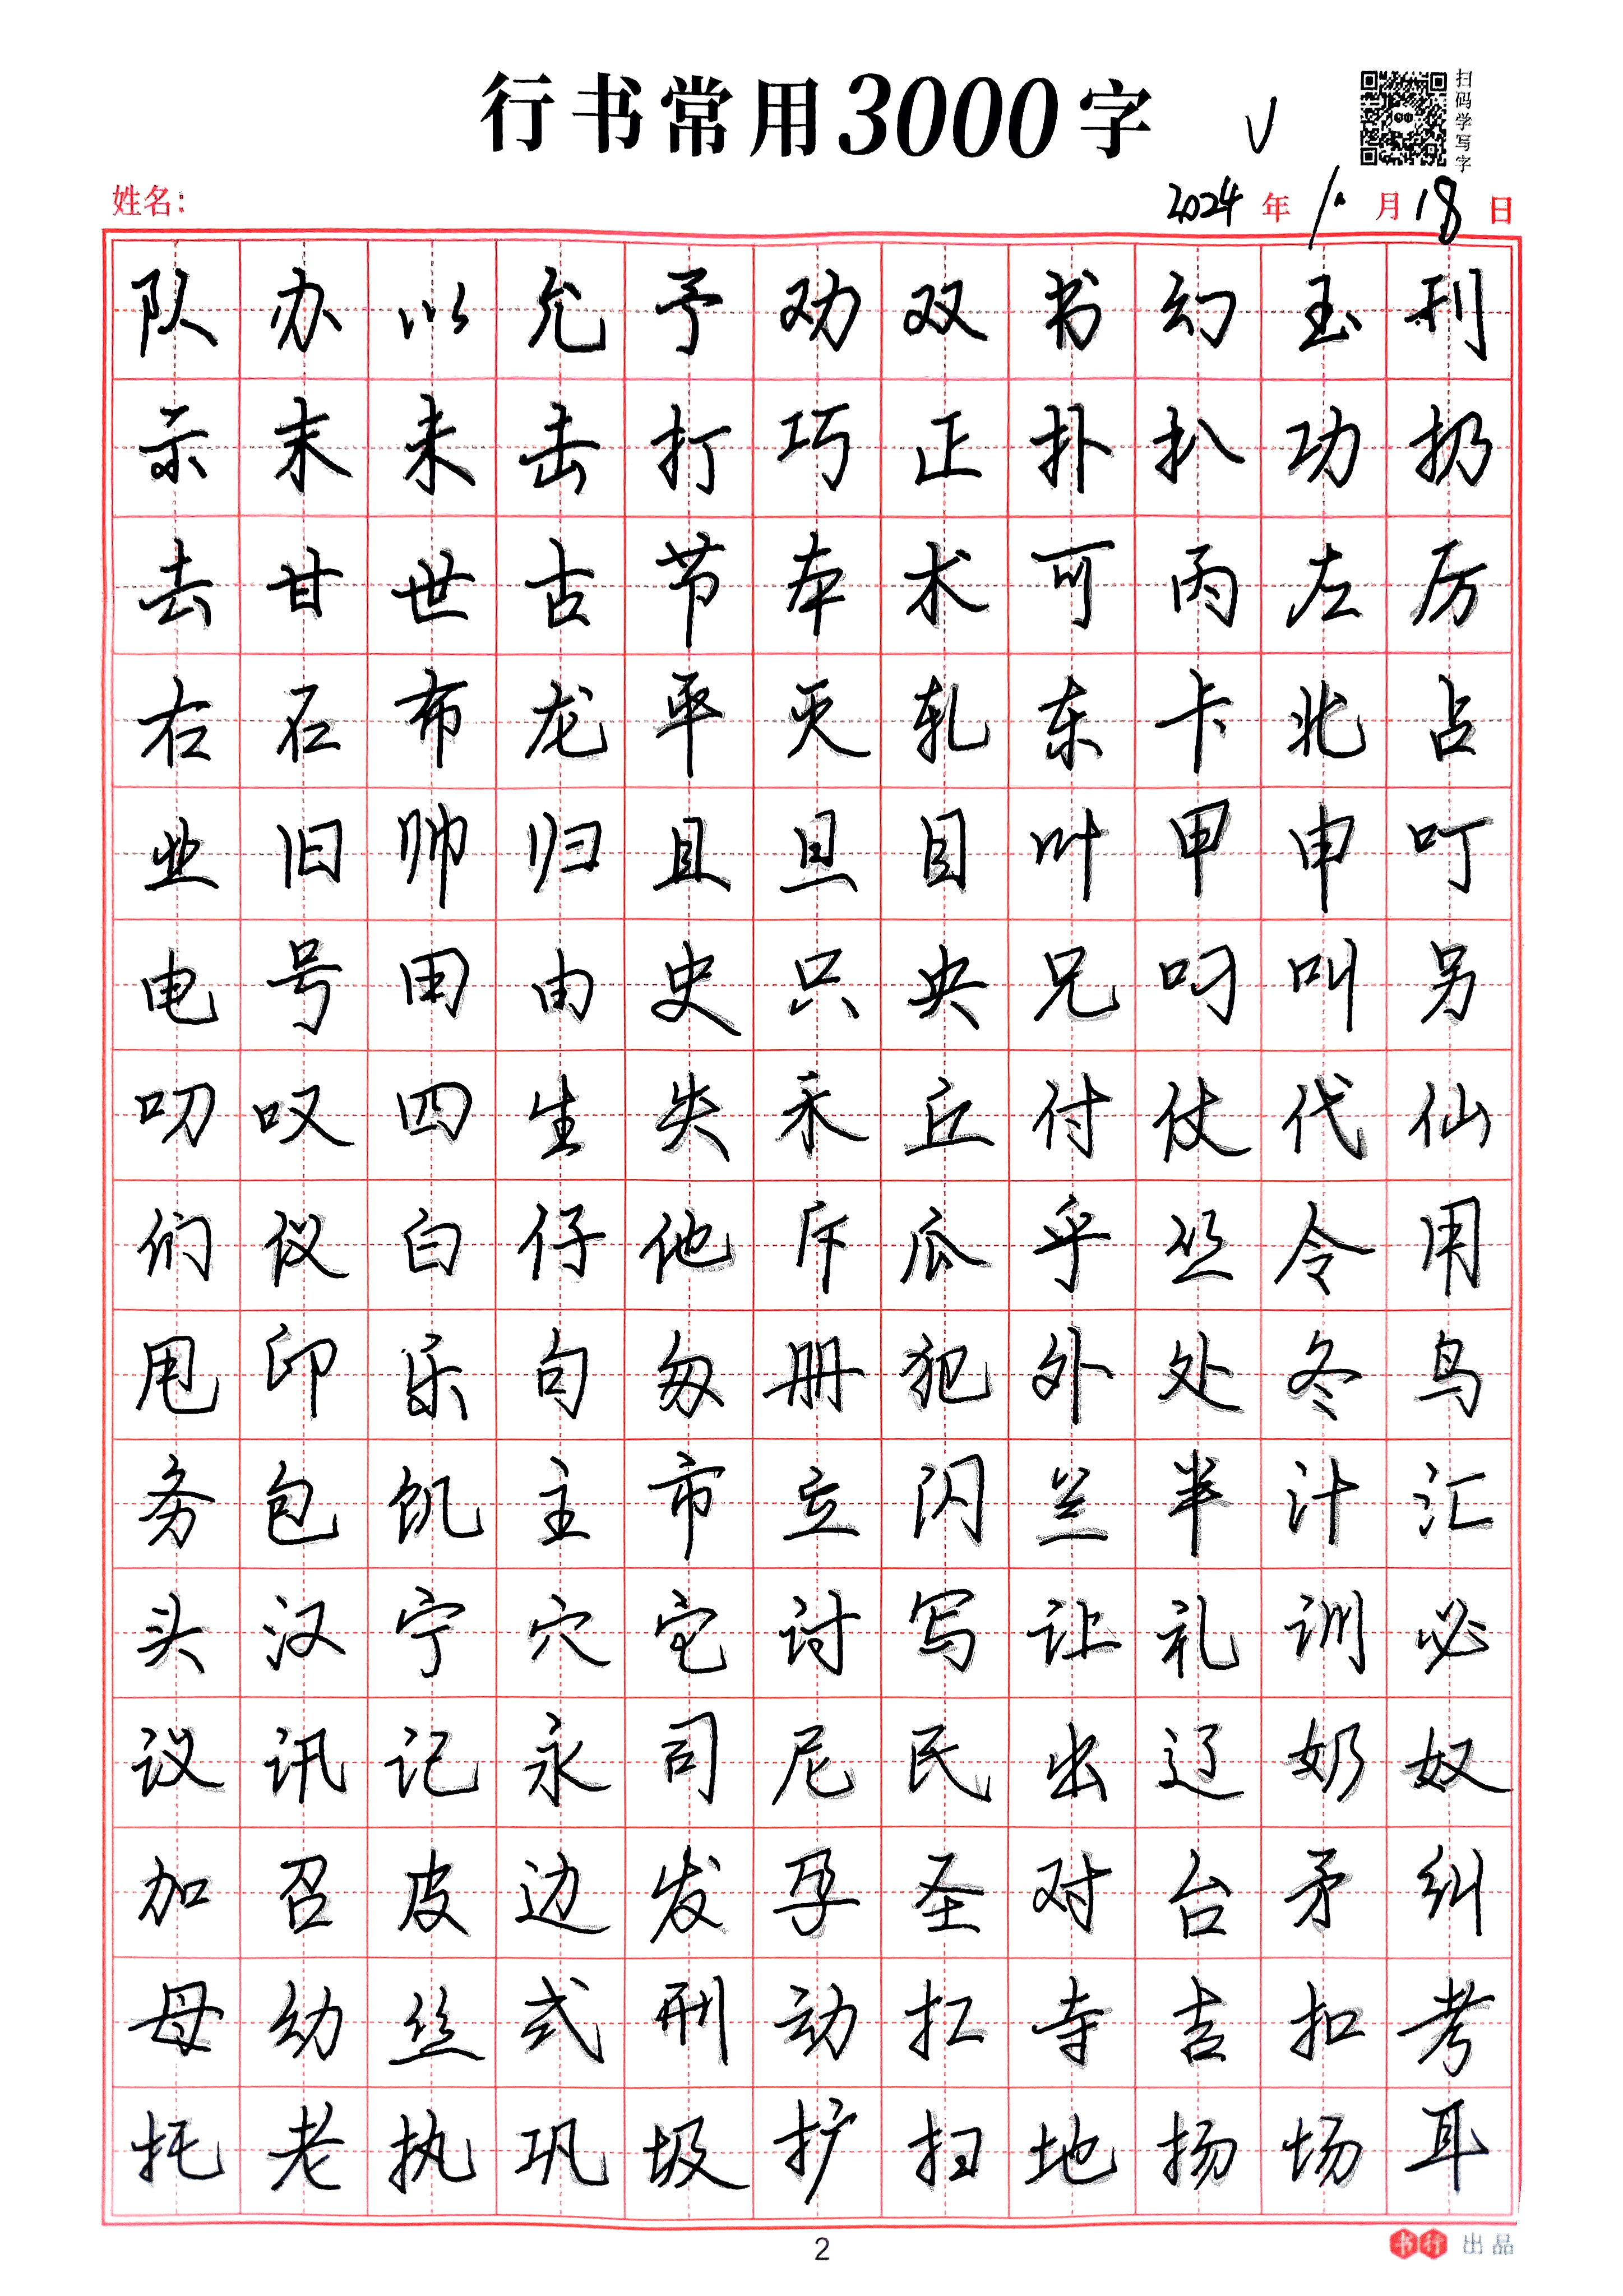 行书常用3000字 √
扫码学写字
姓名： 2024年10月18日
队办以允予劝双书幻玉刊
示末未击打巧正扑扒功扔
去甘世古节本术可丙左厉
右石布龙平灭轧东卡北占
业旧帅归且旦目叶甲申叮
电号田由史只央兄叼叫另
叨叹四生失禾丘付仗代仙
们仪白仔他斥瓜乎丛令用
甩印乐句匆册犯外处冬鸟
务包饥主市立闪兰半汁汇
头汉宁穴它讨写让礼训必
议讯记永司尼民出辽奶奴
加召皮边发孕圣对台矛纠
母幼丝式刑动扛寺吉扣考
托老执巩圾扩扫地扬场耳
2
书行 出品